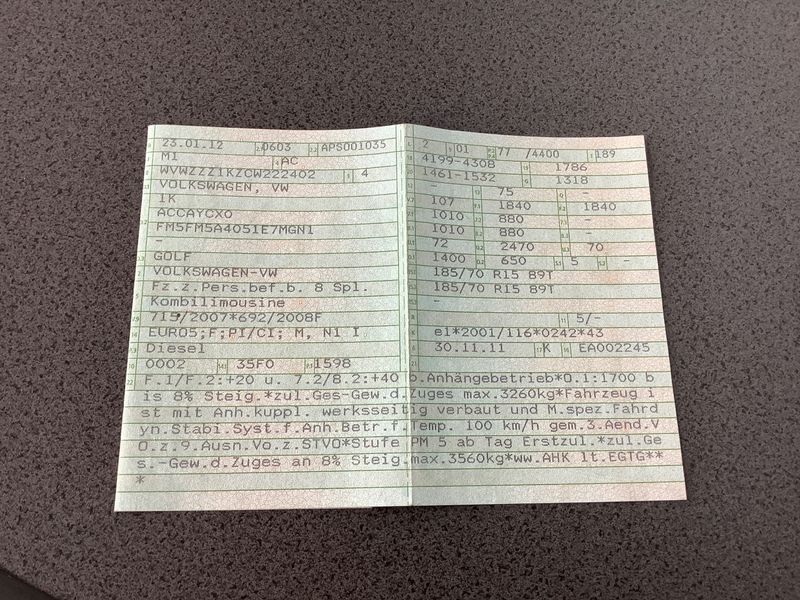 23.01.12 0603 APS001035
M1 AC
WVWZZZ1KZCW222402 4
VOLKSWAGEN, VW
1K
ACCAYCX0
FM5FM5A4051E7MGN1
-
GOLF
VOLKSWAGEN-VW
Fz.z.Pers.bef.b. 8 Spl.
Kombilimousine
715/2007*692/2008F
EURO5;F;PI/CI; M, N1 I
Diesel
0002 35F0 1598
2 01 77 /4400 189
4199-4308 1786
1461-1532 1318
- 75 -
107 1840 1840
1010 880 -
1010 880 -
72 2470 70
1400 650 5 -
185/70 R15 89T
185/70 R15 89T
-
5/-
e1*2001/116*0242*43
30.11.11 K EA002245
F.1/F.2:+20 u. 7.2/8.2:+40 b.Anhängebetrieb*O.1:1700 b
is 8% Steig.*zul.Ges-Gew.d.Zuges max.3260kg*Fahrzeug i
st mit Anh.kuppl. werksseitig verbaut und M.spez.Fahrd
yn.Stabi.Syst.f.Anh.Betr.f.Temp. 100 km/h gem.3.Aend.V
O.z.9.Ausn.Vo.z.STVO*Stufe PM 5 ab Tag Erstzul.*zul.Ge
s.-Gew.d.Zuges an 8% Steig.max.3560kg*ww.AHK lt.EGTG**
*